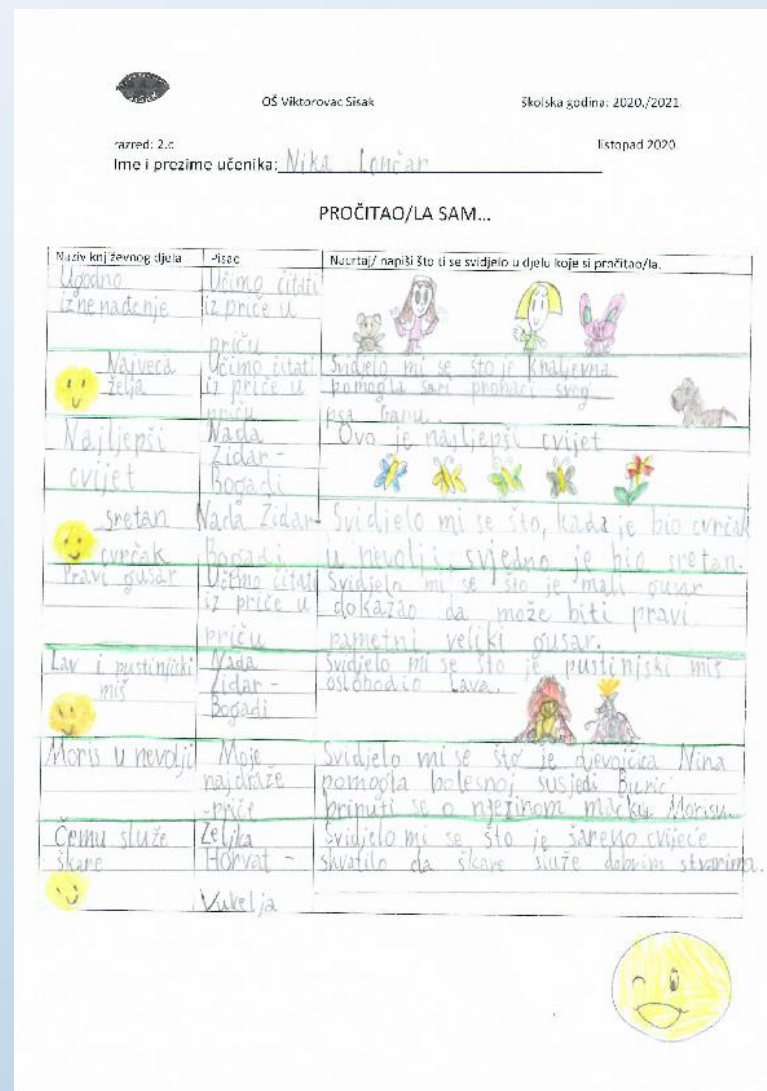 OŠ Viktorovac Sisak
Školska godina: 2020./2021.
razred: 2.c
listopad 2020.
Ime i prezime učenika: Nika Lončar
PROČITAO/LA SAM...
Naziv književnog djela
Pisac
Nacrtaj/ napiši što ti se svidjelo u djelu koje si pročitao/la.
Ugodno
iznenađenje
Učimo čitati
iz priče u
priču
Najveća
želja
Učimo čitati
iz priče u
priču
Svidjelo mi se što je
pomogla svog
psa
Najljepši
cvijet
Nada
Zidar-
Bogadi
Ovo je najljepši cvijet
sretan
cvrčak
Nada Zidar-
Bogadi
Svidjelo mi se što, kada je bio cvrčak
u nevolji, svjedno je bio sretan.
Pravi gusar
Učimo čitati
iz priče u
priču
Svidjelo mi se što je mali gusar
dokazao da može biti pravi
pametni veliki gusar.
Lav i pustinjski
miš
Nada
Zidar-
Bogadi
Svidjelo mi se što je pustinjski miš
oslobodio Lava.
Moris u nevolji
Moje
najdraže
priče
Svidjelo mi se što je djevojčica Nina
pomogla bolesnoj susjedi
se o njezinom mačku Morisu.
Čemu služe
škare
Željka
Horvat-
Vukelja
Svidjelo mi se što je šareno cvijeće
shvatilo da škare služe dobrim stvarima.